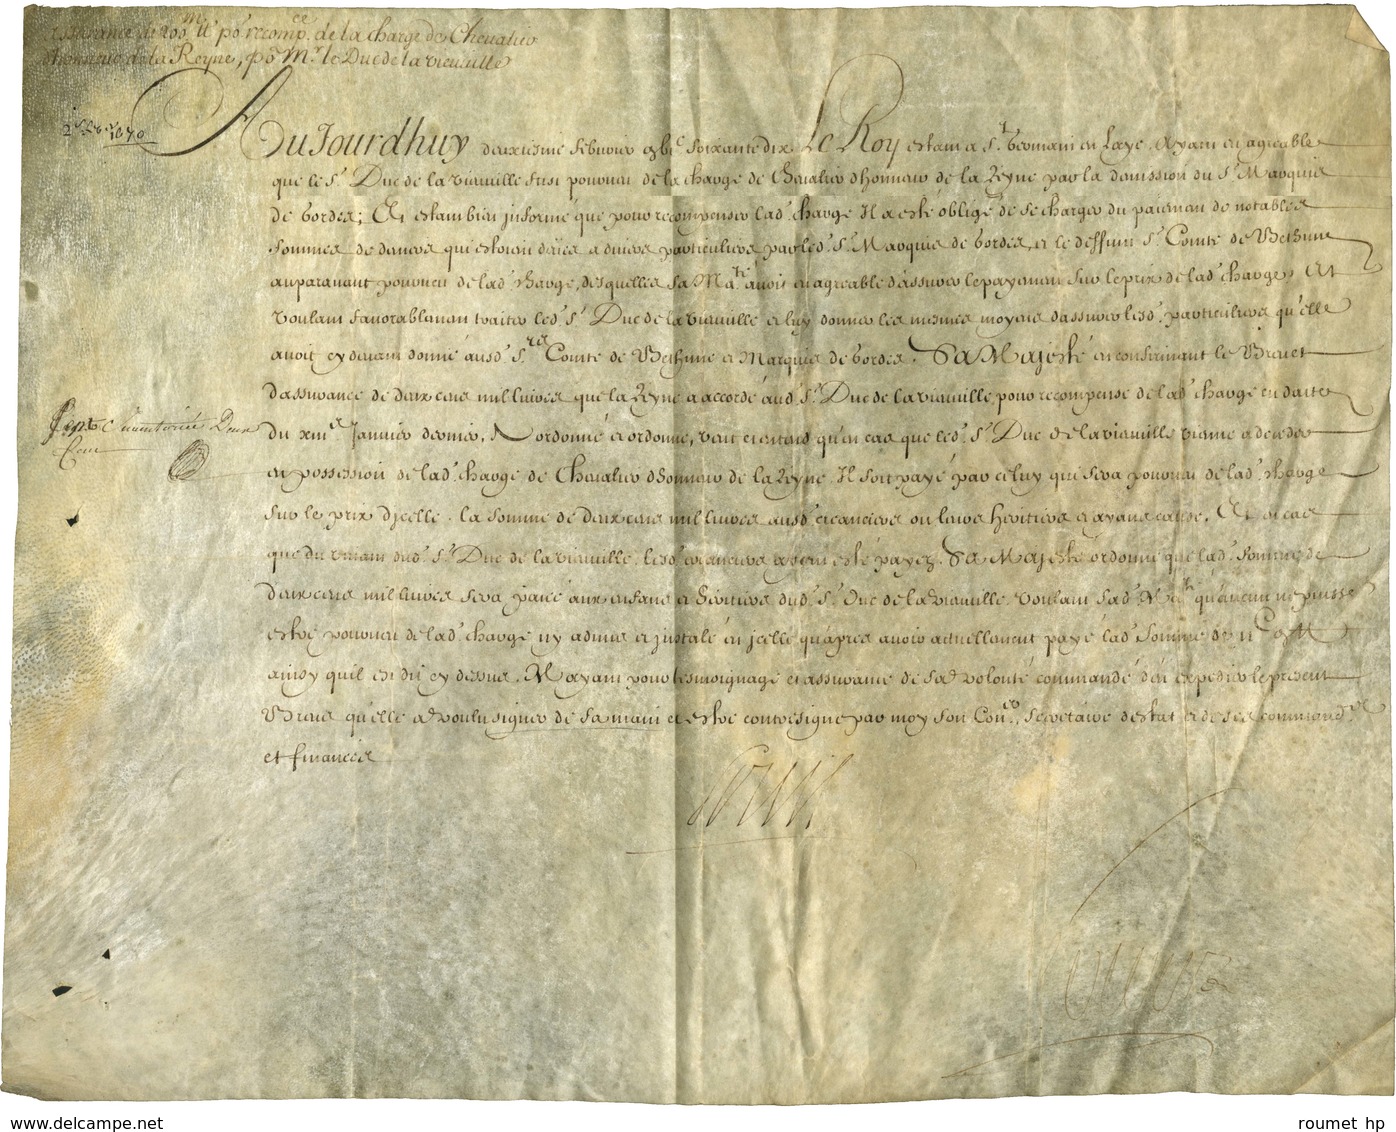 assurance de 200 m lt po recompce de la charge de Chevalier
d'honneur de la Reyne, po Mr le Duc de la vieuville
2 1670
AuJourdhuy deuxiesme febvrier gbic soixante dix Le Roy estant a St Germain en Laye, Ayant eu agreable
que le Sr Duc de la vieuville fust pourveu de la charge de Chevalier dhonneur de la Reyne par la demission du Sr Marquis
de bordes; Et estant bien jnformé que pour recompenser lad. charge Jl a esté obligé de se charger du paiement de notables
sommes de deniers qui estoient deües a divers particuliers par led. Sr Marquis de bordes, et le deffunt Sr Comte de Bethune
auparavant pourveu de lad. charge, desquelles sa Mate avoit eu agreable d'assurer le payement sur le prix de lad. charge, Et
voulant favorablement traiter led. Sr Duc de la vieuville et luy donner les mesmes moyens dassurer lesd. particuliers qu'elle
avoit cy devant donné ausd. Srs Comte de Bethune et Marquis de bordes. Sa Majesté en confirmant le Brevet
dassurance de deux cens mil livres que la Reyne a accordé aud. Sr Duc de la vieuville pour recompense de lad. charge en datte
du xiiie Janvier dernier, A ordonné et ordonne, veut et entend qu'en cas que led. Sr Duc de la vieuville vienne a deceder
en possession de lad. charge de Chevalier dhonneur de la Reyne, Jl soit payé par celuy qui sera pourveu de lad. charge
sur le prix djcelle la somme de deux cens mil livres ausd. creanciers ou leurs heritiers et ayans cause, Et en cas
que du vivant dud. Sr Duc de la vieuville, lesd. creanciers ayent esté payez, Sa Majesté ordonne que lad. somme de
deux cens mil livres sera paiée aux enfans et heritiers dud. Sr Duc de la vieuville, voulant sad. Mate qu'aucun ne puisse
estre pourveu de lad. charge ny admis et jnstalé en jcelle qu'apres avoir actuellement payé lad. somme de IIc M
ainsy quil est dit cy dessus, M'ayant pour tesmoignage et assurance de sa volonté commandé d'en expedier le present
Brevet qu'elle a voulu signer de sa main et estre contresigné par moy son Coner, secretaire destat et de ses commandens
et finances
Louis